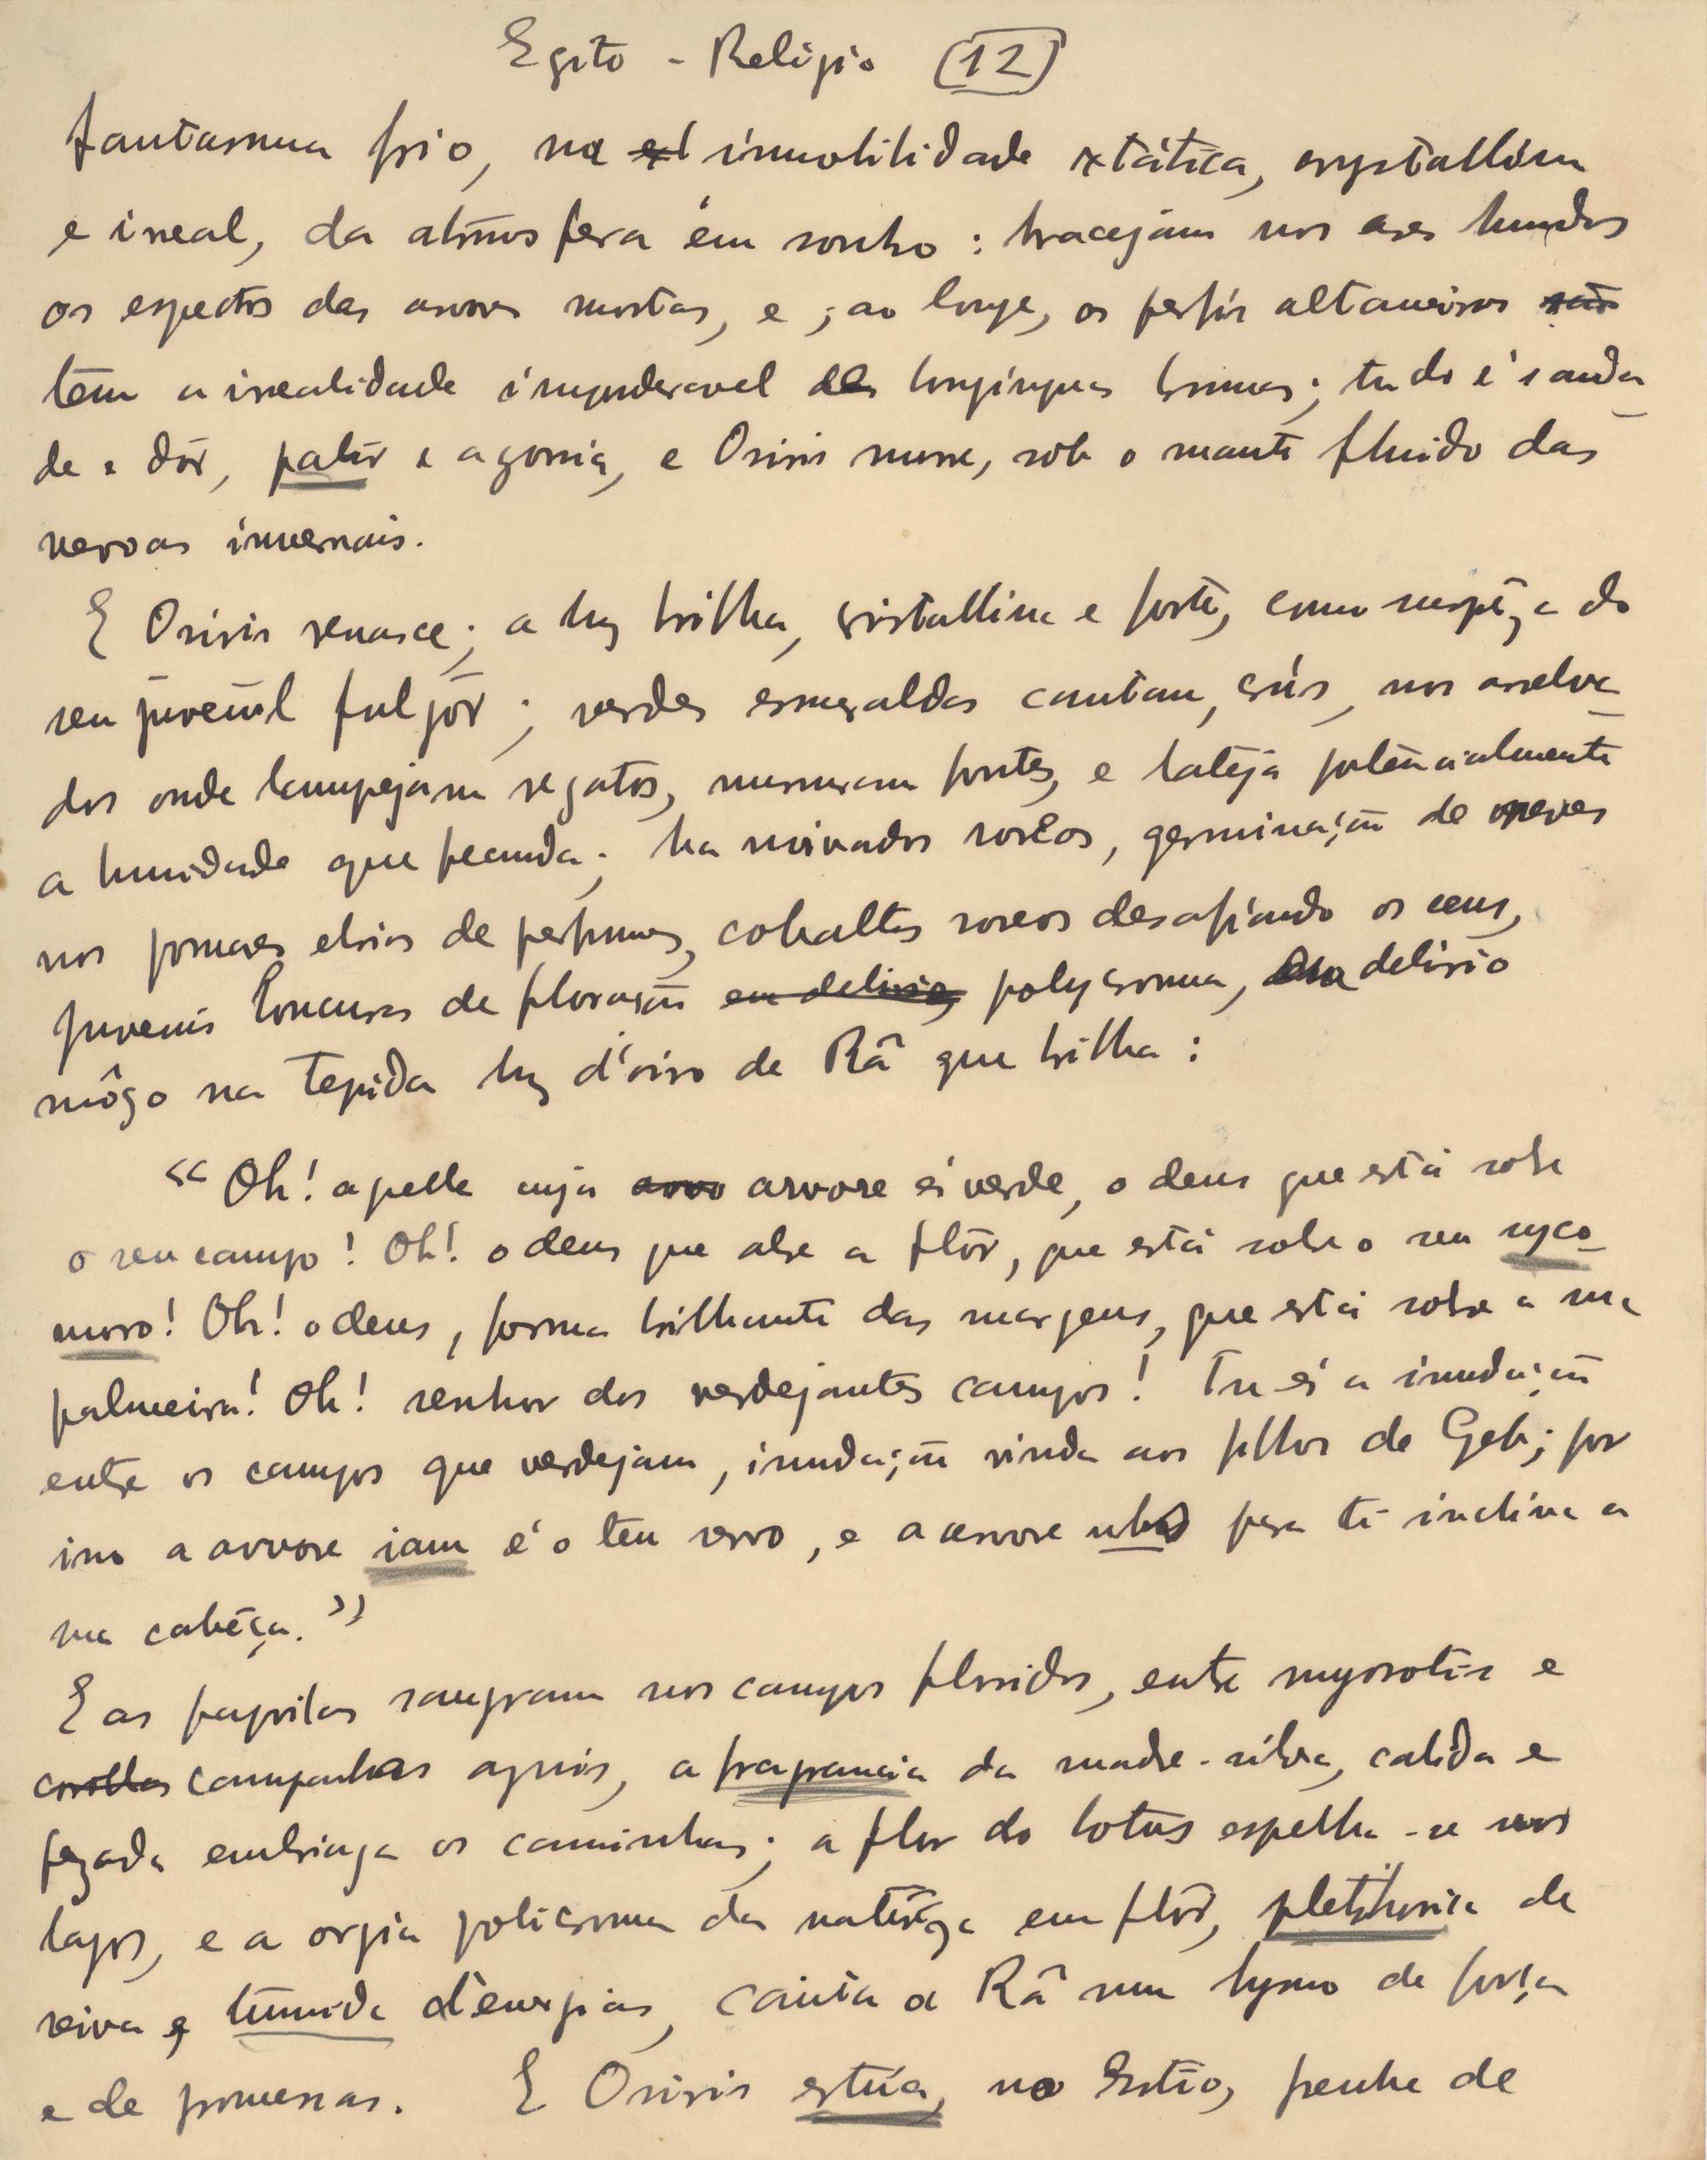 Egito - Religião (12)
fantasma frio, na immobilidade extática, crystallina
e irreal, da atmosfera em sonho: bracejam nos ares humidos
os espectros das arvores mortas, e, ao longe, os perfis altaneiros
tem a irrealidade imponderavel das longinquas brumas; tudo é sauda-
de e dôr, palôr e agonia, e Osiris morre, sob o manto fluido das
nevoas invernais.
E Osiris renasce; a luz brilha, cristallina e forte, como surpreza do
seu juvenil fulgôr; verdes esmeraldas cantam, crús, nos arrelva-
dos onde lampejam regatos, murmuram fontes, e lateja potencialmente
a humidade que fecunda; ha noivados roseos, germinação de
nos pomares ebrios de perfumes, cobaltos roseos desafiando os ceus,
juvenis loucuras de floração em delirio, polycroma, delirio
môço na tepida luz d'oiro de Râ que brilha:
"Oh! aquelle cuja arvore é verde, o deus que está sobre
o seu campo! Oh! o deus que abre a flôr, que está sobre o seu syco-
moro! Oh! o deus, forma brilhante das margens, que está sobre a sua
palmeira! Oh! senhor dos verdejantes campos! Tu és a inundação
entre os campos que verdejam, inundação vinda aos filhos de Geb; por
isso a arvore iam é o teu servo, e a arvore nbs para ti inclina a
sua cabêça."
E as papoilas sangram nos campos floridos, entre myosotis e
corollas campanulas azuis, a fragrancia da madre-silva, calida e
pezada embriaga os caminhos; a flor do lotus espelha-se nos
lagos, e a orgia policroma da natureza em flôr, plethorica de
seiva e, tumida d'energias, canta a Râ num hymno de força
e de promessas. E Osiris estúa, no Estio, prenhe de